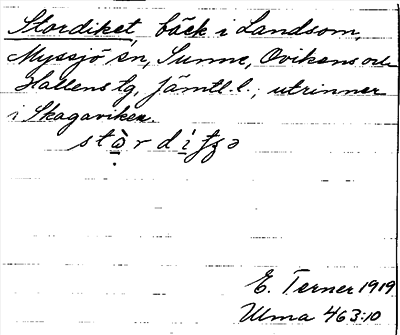 Stordiket, bäck i Landsom,
Myssjö sn, Sunne, Ovikens och
Hallens tg, Jämtl. l.; utrinner
i Skagaviken.
E. Terner 1919
Ulma 463:10